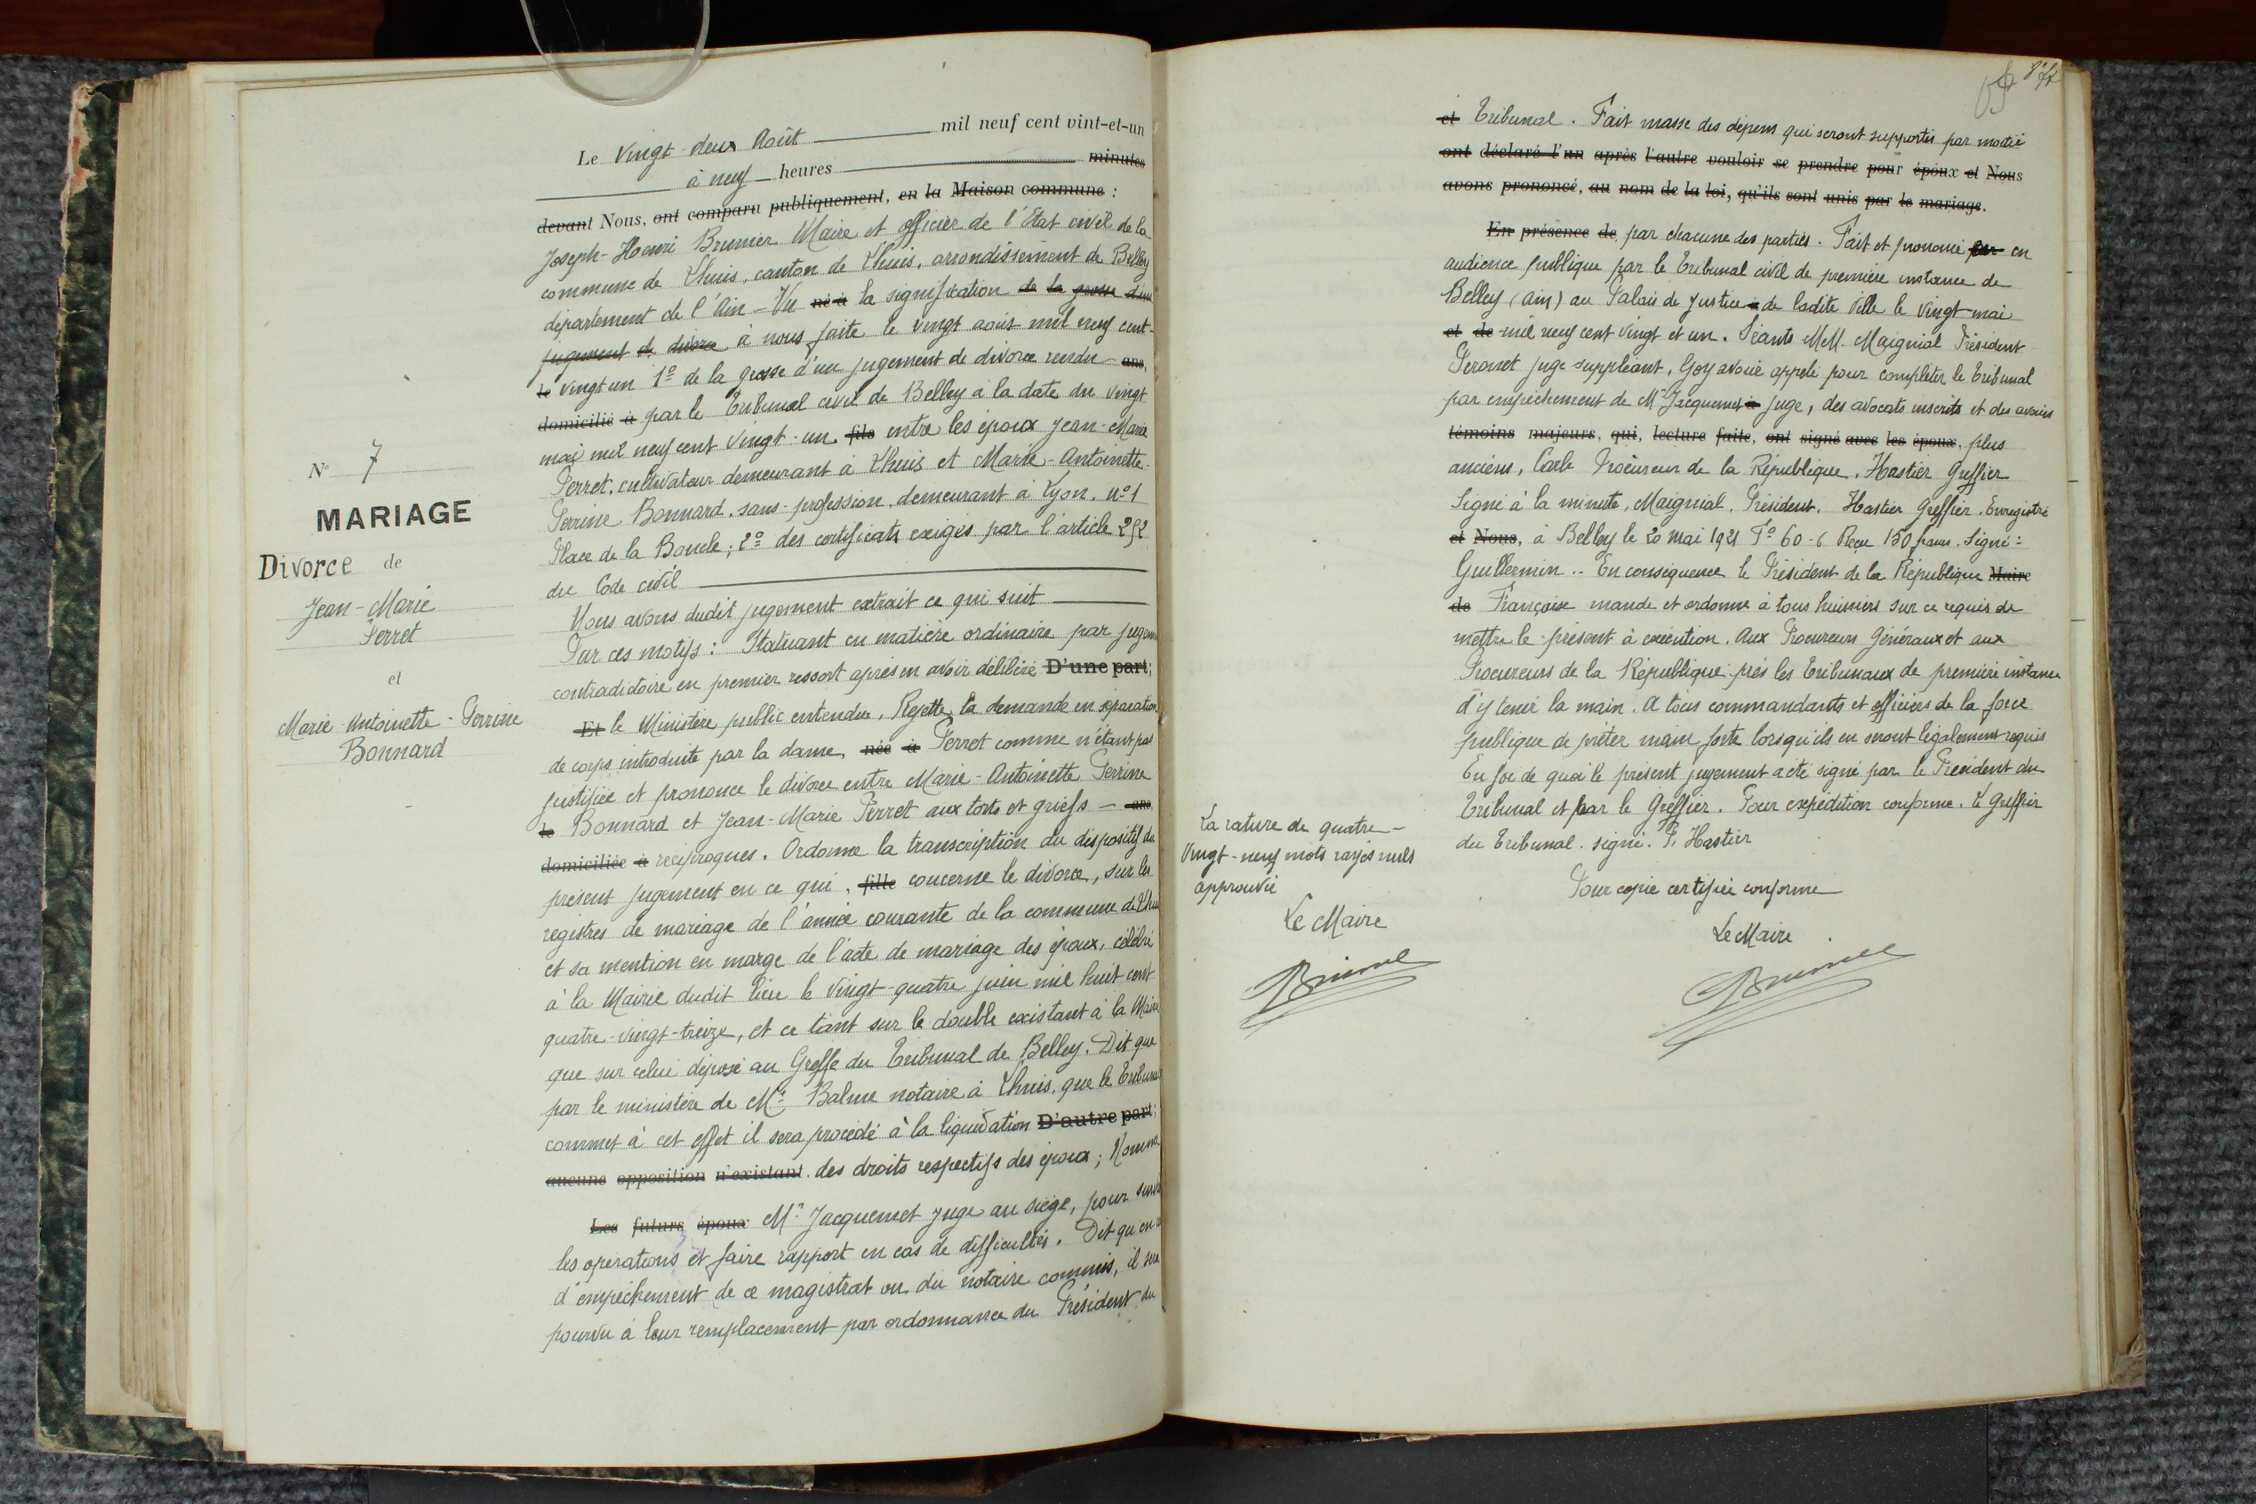 Le vingt-deux Août mil neuf cent vint-et-un
à neuf heures minutes
devant Nous, ont comparu publiquement, en la Maison commune :
Joseph-Henri Brunier Maire et officier de l'Etat civil de la
commune de Lhuis, canton de Lhuis, arrondissement de Belley
département de l'Ain - Vu né à la signification de la grosse d'un
jugement de divorce à nous faite le vingt août mil neuf cent-
le vingt un 1º de la grosse d'un jugement de divorce rendu - ans,
domicilié à par le Tribunal civil de Belley à la date du vingt
mai mil neuf cent vingt-un, fils entre les époux Jean-Marie
Perret, cultivateur demeurant à Lhuis et Marie-Antoinette-
Perrine Bonnard, sans profession, demeurant à Lyon, nº 1
Place de la Boucle; 2º des certificats exigés par l'article 252
du Code civil
Nº 7
MARIAGE
Divorce de
Jean-Marie
Perret
et
Marie-Antoinette-Perrine
Bonnard
Nous avons dudit jugement extrait ce qui suit
Par ces motifs : Statuant en matière ordinaire par jugem
contradictoire en premier ressort après en avoir délibéré D'une part;
Et le Ministère public entendu, Rejette la demande en séparation
de corps introduite par la dame, née à Perret comme n'étant pas
justifiée et prononce le divorce entre Marie-Antoinette Perrine
le Bonnard et Jean-Marie Perret aux torts et griefs - ans
domiciliée à réciproques. Ordonne la transcription du dispositif du
présent jugement en ce qui, fille concerne le divorce, sur les
registres de mariage de l'année courante de la commune de Lhuis
et sa mention en marge de l'acte de mariage des époux, célébré
à la Mairie dudit lieu le vingt-quatre juin mil huit cent
quatre-vingt-treize, et ce tant sur le double existant à la Mairie
que sur celui déposé au Greffe du Tribunal de Belley. Dit que
par le ministère de Me Balme notaire à Lhuis, que le Tribunal
commet à cet effet il sera procédé à la liquidation D'autre part;
aucune opposition n'existant. des droits respectifs des époux; Nomme
Les futurs époux Mr Jacquemet juge au siège, pour
les opérations et faire rapport en cas de difficultés. Dit qu'en
d'empêchement de ce magistrat ou du notaire commis, il sera
pourvu à leur remplacement par ordonnance du Président du
et Tribunal. Fait masse des dépens qui seront supportés par moitié
ont déclaré l'un après l'autre vouloir se prendre pour époux et Nous
avons prononcé, au nom de la loi, qu'ils sont unis par le mariage.
En présence de, par chacune des parties. Fait et prononcé par en
audience publique par le Tribunal civil de première instance de
Belley (Ain) au Palais de Justice à de ladite Ville le vingt mai
et de mil neuf cent vingt et un. Séants MM. Maignial Président
Peronet juge suppléant, Goy avoué appelé pour compléter le Tribunal
par empêchement de Mr Jacquemet à juge, des avocats inscrits et des avoués
témoins majeurs, qui, lecture faite, ont signé avec les époux, plus
anciens, Procureur de la République, Hastier Greffier
Signé à la minute, Maignial, Président. Hastier Greffier. Enregistré
et Nous, à Belley le 20 mai 1921 Fº 60-6 Reçu 150 francs. Signé :
Guillermin .. En conséquence le Président de la République Maire
de Française mande et ordonne à tous huissiers sur ce requis de
mettre le présent à exécution. Aux Procureurs Généraux et aux
Procureurs de la République près les Tribunaux de première instance
d'y tenir la main. A tous commandants et officiers de la force
publique de prêter main forte lorsqu'ils en seront légalement requis
En foi de quoi le présent jugement a été signé par le Président du
Tribunal et par le Greffier. Pour expédition conforme. Le Greffier
du Tribunal. signé. P. Hastier
Pour copie certifiée conforme
Le Maire
Brunier
La rature de quatre-
vingt-neuf mots rayés nuls
approuvée
Le Maire
Brunier